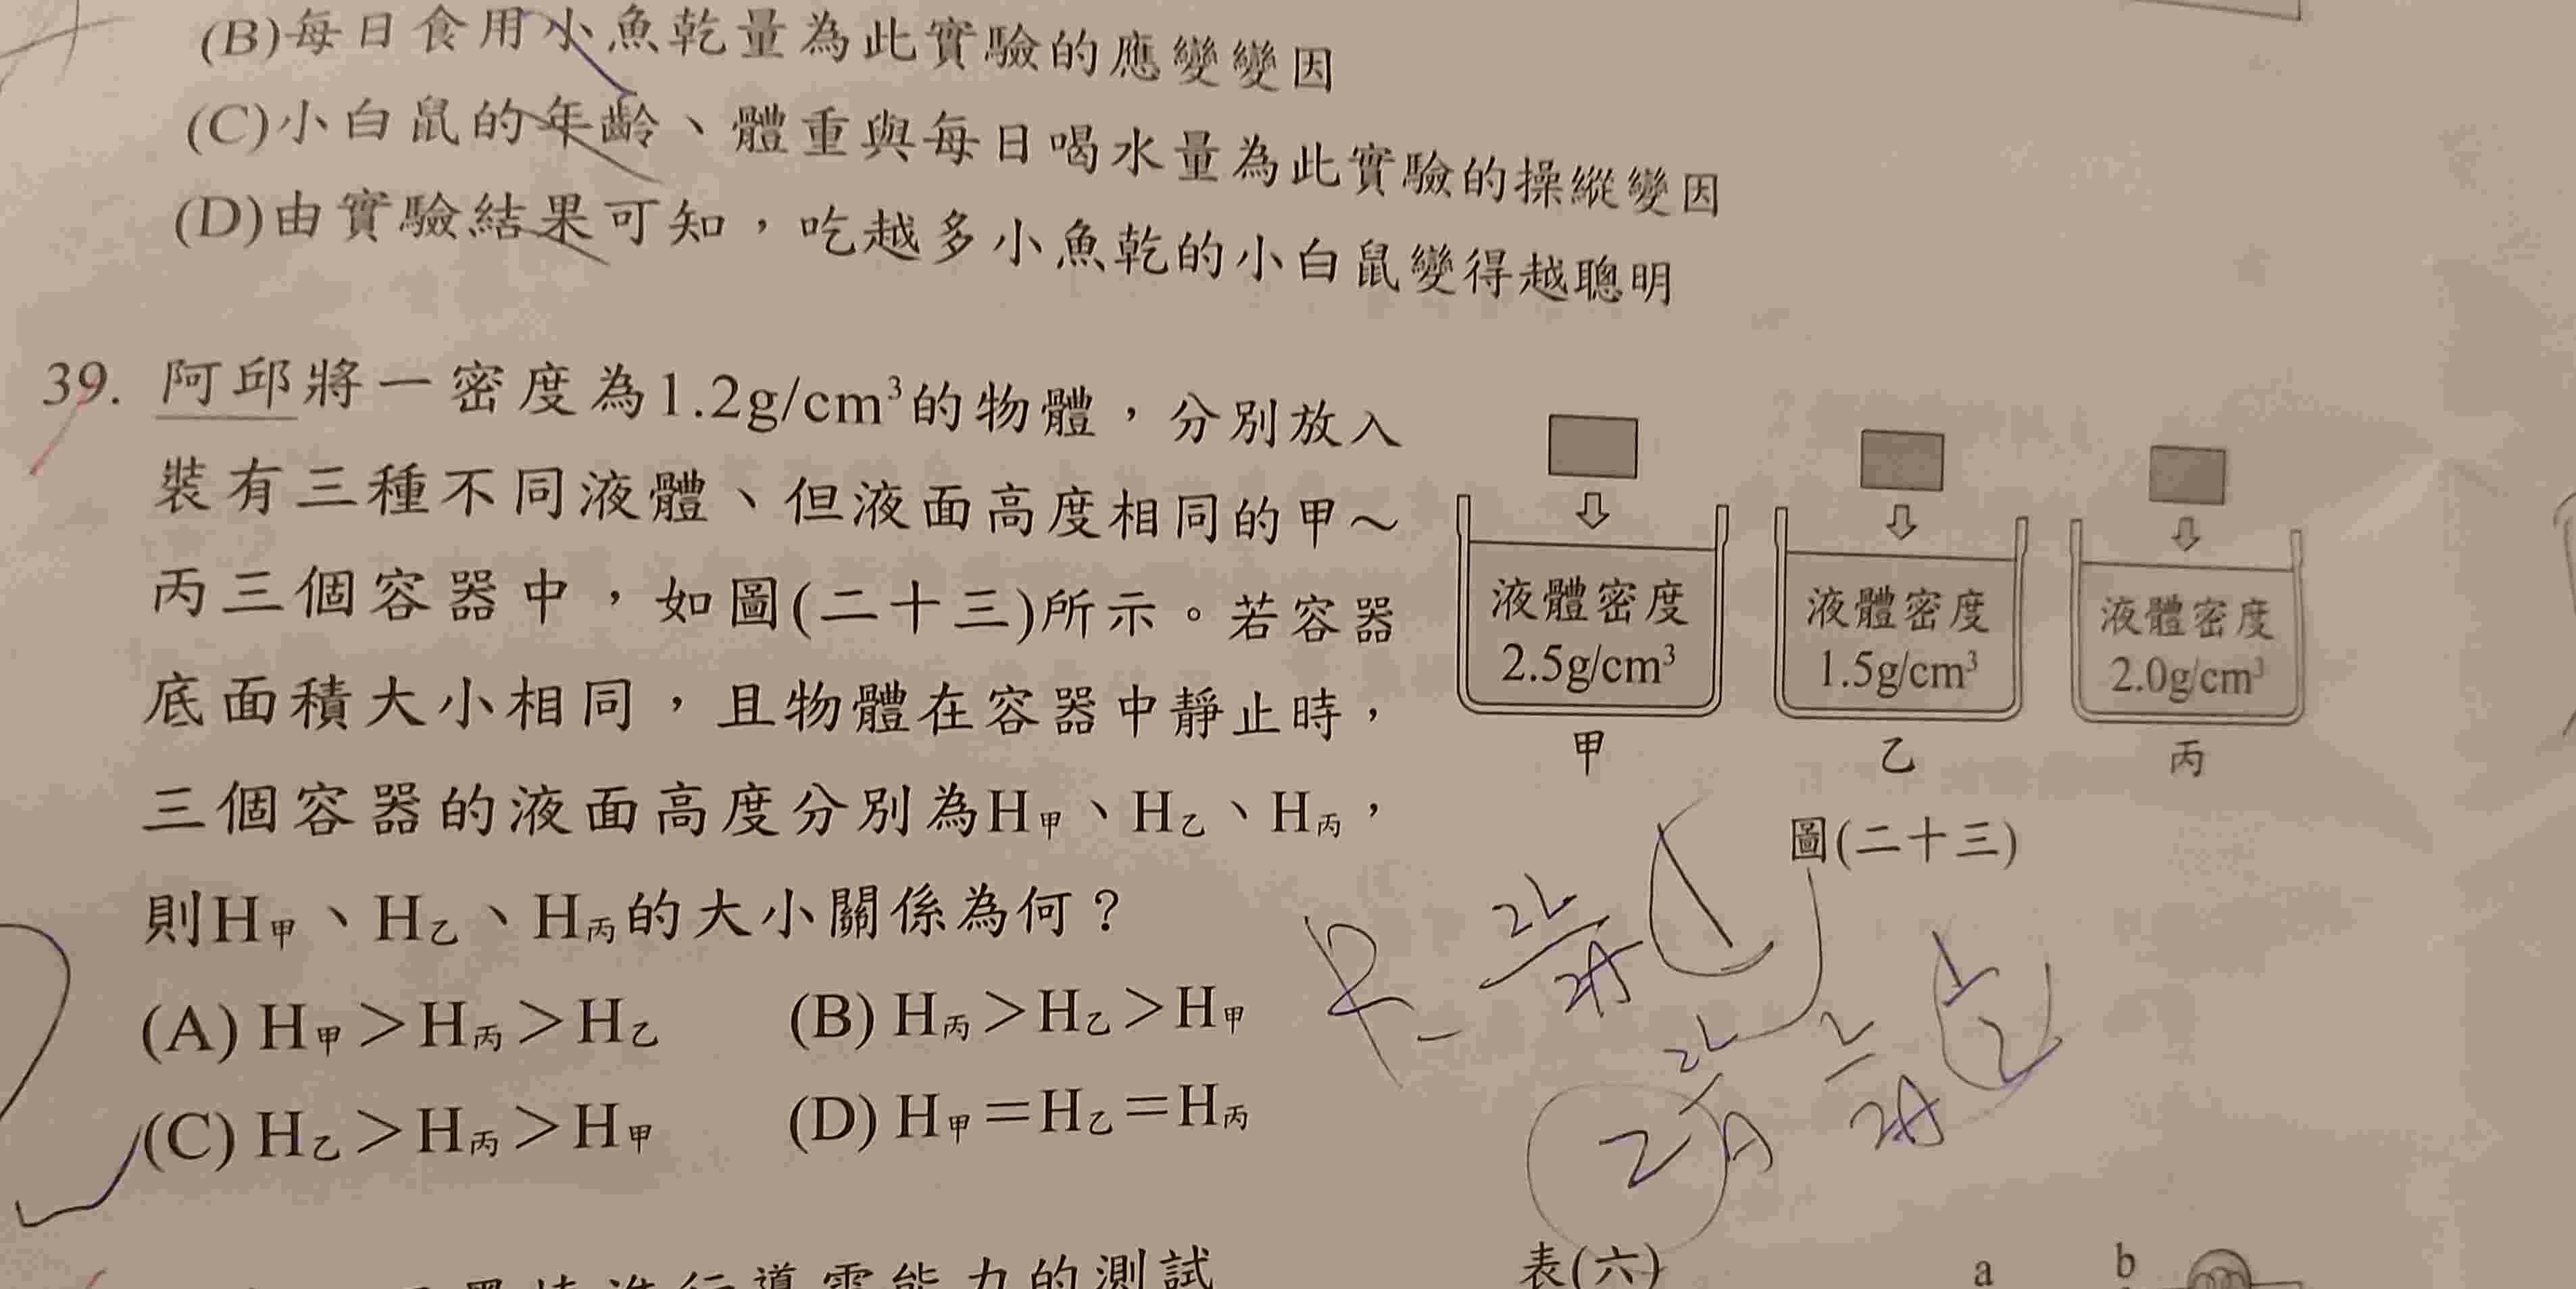 (B)每日食用小魚乾量為此實驗的應變變因
(C)小白鼠的年齡、體重與每日喝水量為此實驗的操縱變因
(D)由實驗結果可知,吃越多小魚乾的小白鼠變得越聰明
39. 阿邱將一密度為1.2g/cm³的物體,分別放入
裝有三種不同液體、但液面高度相同的甲~
丙三個容器中,如圖(二十三)所示。若容器
底面積大小相同,且物體在容器中靜止時,
三個容器的液面高度分別為H甲、H乙、H丙,
則H甲、H乙、H丙的大小關係為何?
(A) H甲>H丙>H乙
(B) H丙>H乙>H甲
(C) H乙>H丙>H甲
(D) H甲=H乙=H丙
液體密度
2.5g/cm³
甲
液體密度
1.5g/cm³
乙
液體密度
2.0g/cm³
丙
圖(二十三)
導電能力的測試
表(六)
a
b